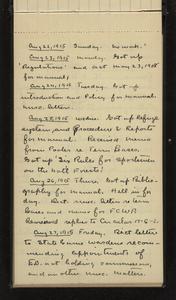 Aug 22, 1915 Sunday. No work.
Aug 23, 1915 Monday. Got up
Regulations and act may 23, 1908
for manual,
Aug 24, 1915 Tuesday. Got up
introduction and Policy for manual.
misc. letters.
Aug 25, 1915 Wednes. Got up Refuge
system, and Procedure & Reports
for manual. Received memo
from Pooler re Fern Bases.
Got up "Six Rules for Sportsmen
on the Natl Forests"
Aug 26, 1915 Thurs. Got up Biblio-
graphy for manual. Half in for
day. Dist. misc. letters re Fern
Bases and memo for
Leavened replies to Circular
Aug 27, 1915 Friday. Dist letter
to State Game wardens recom-
mending appointments of
E.D. not holding commissions,
and on other misc. matters.